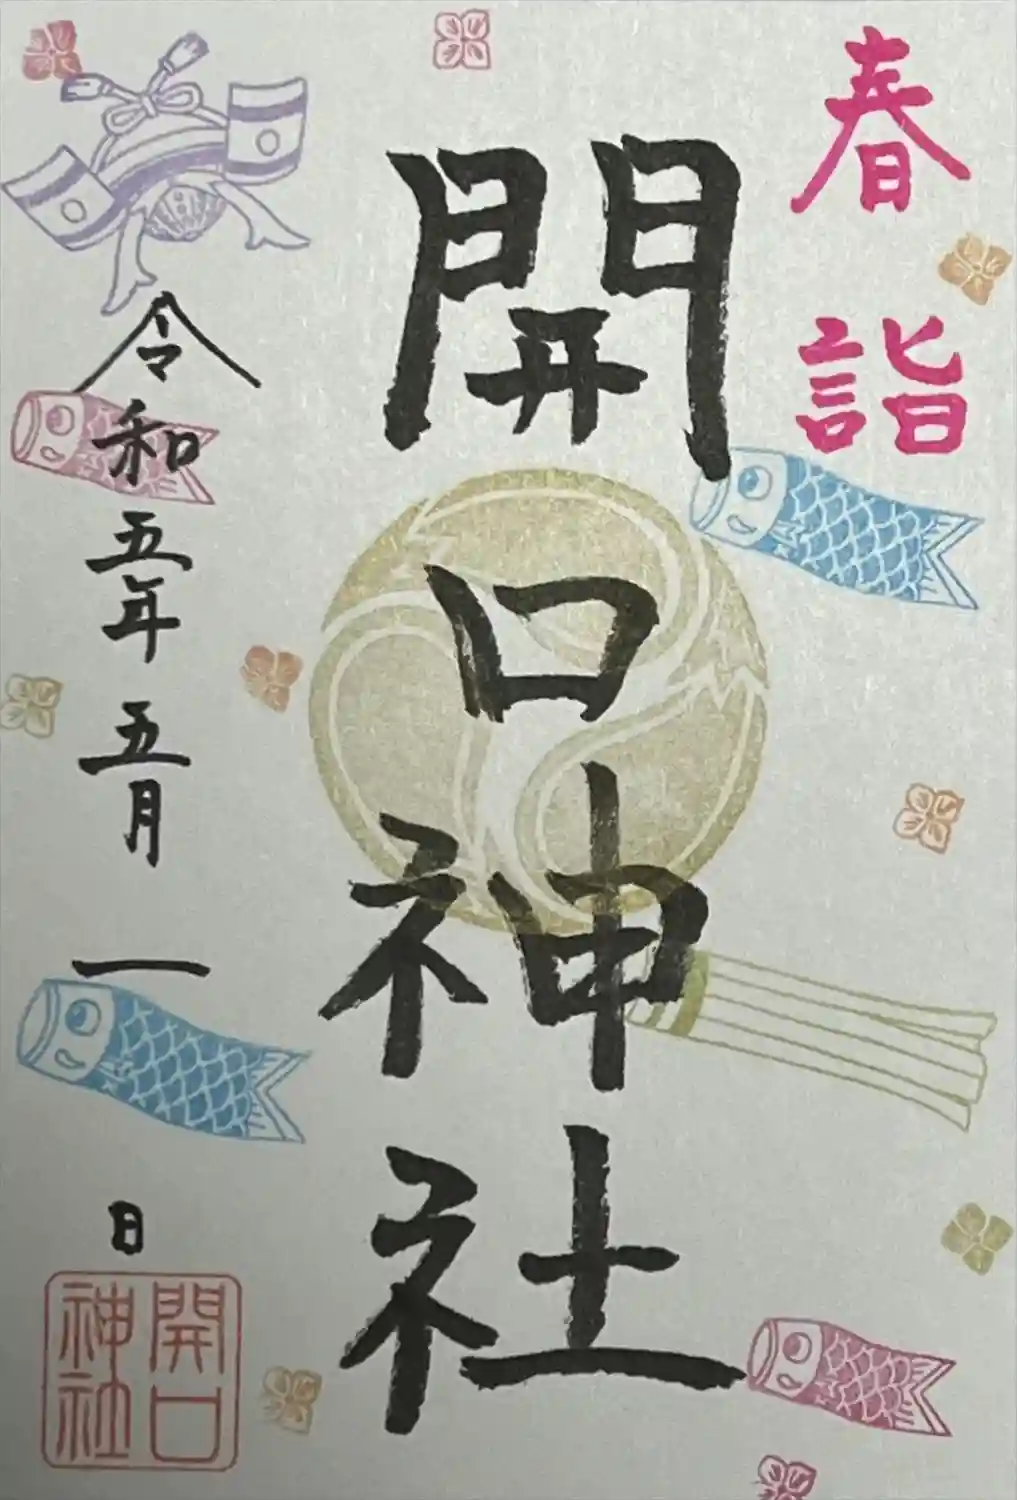 春詣
開口神社
令和五年五月一日
開口
神社